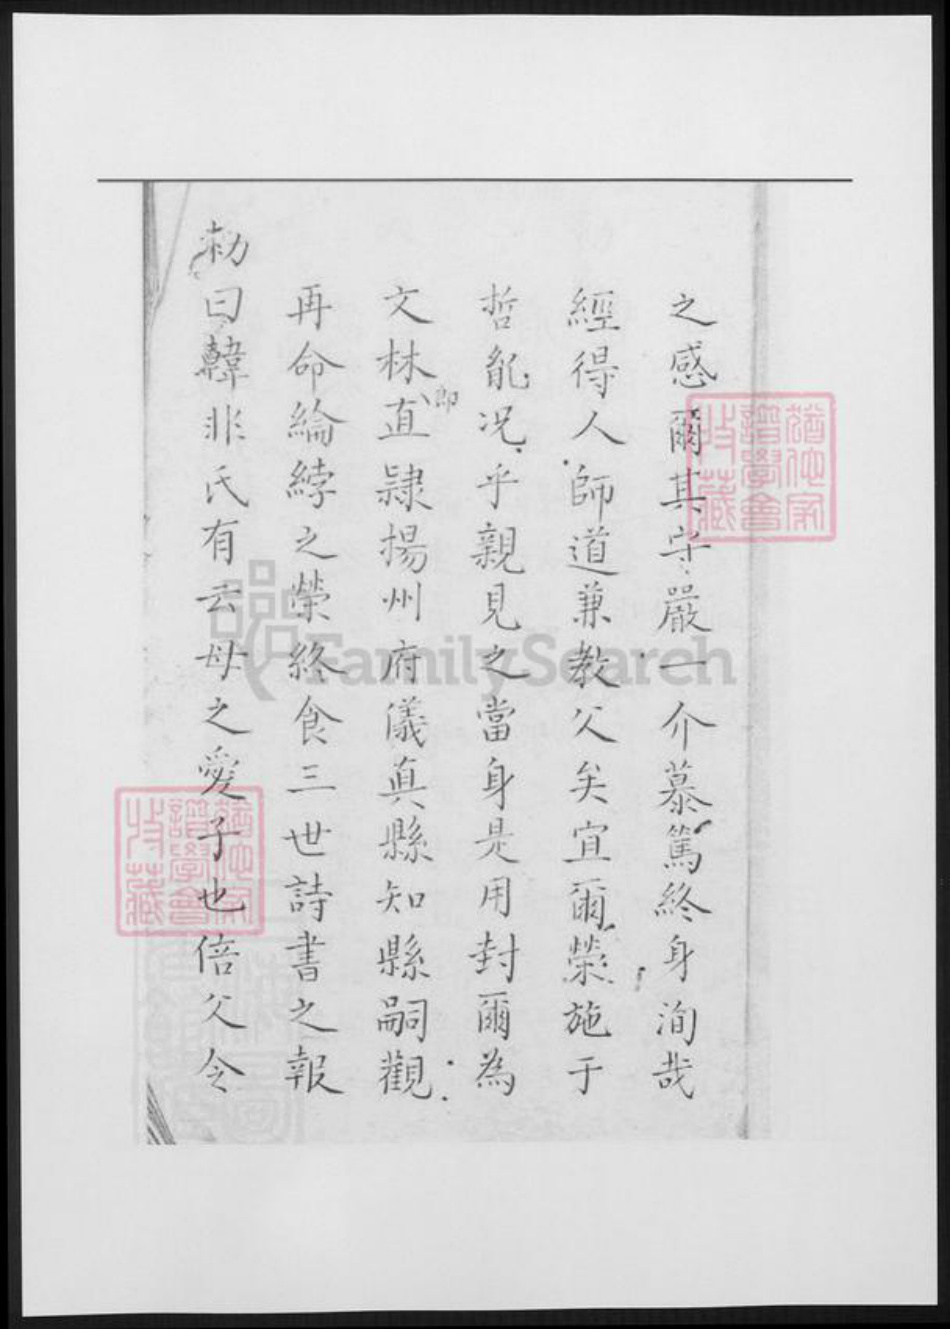 之感爾其守嚴一介慕篤終身洵哉
經得人師道兼教父矣宜爾榮施于
哲胤况乎親見之當身是用封爾為
文林郎直隸揚州府儀真縣知縣嗣觀
再命綸綍之榮終食三世詩書之報
勑曰韓非氏有云母之愛子也倍父令
FamilySearch